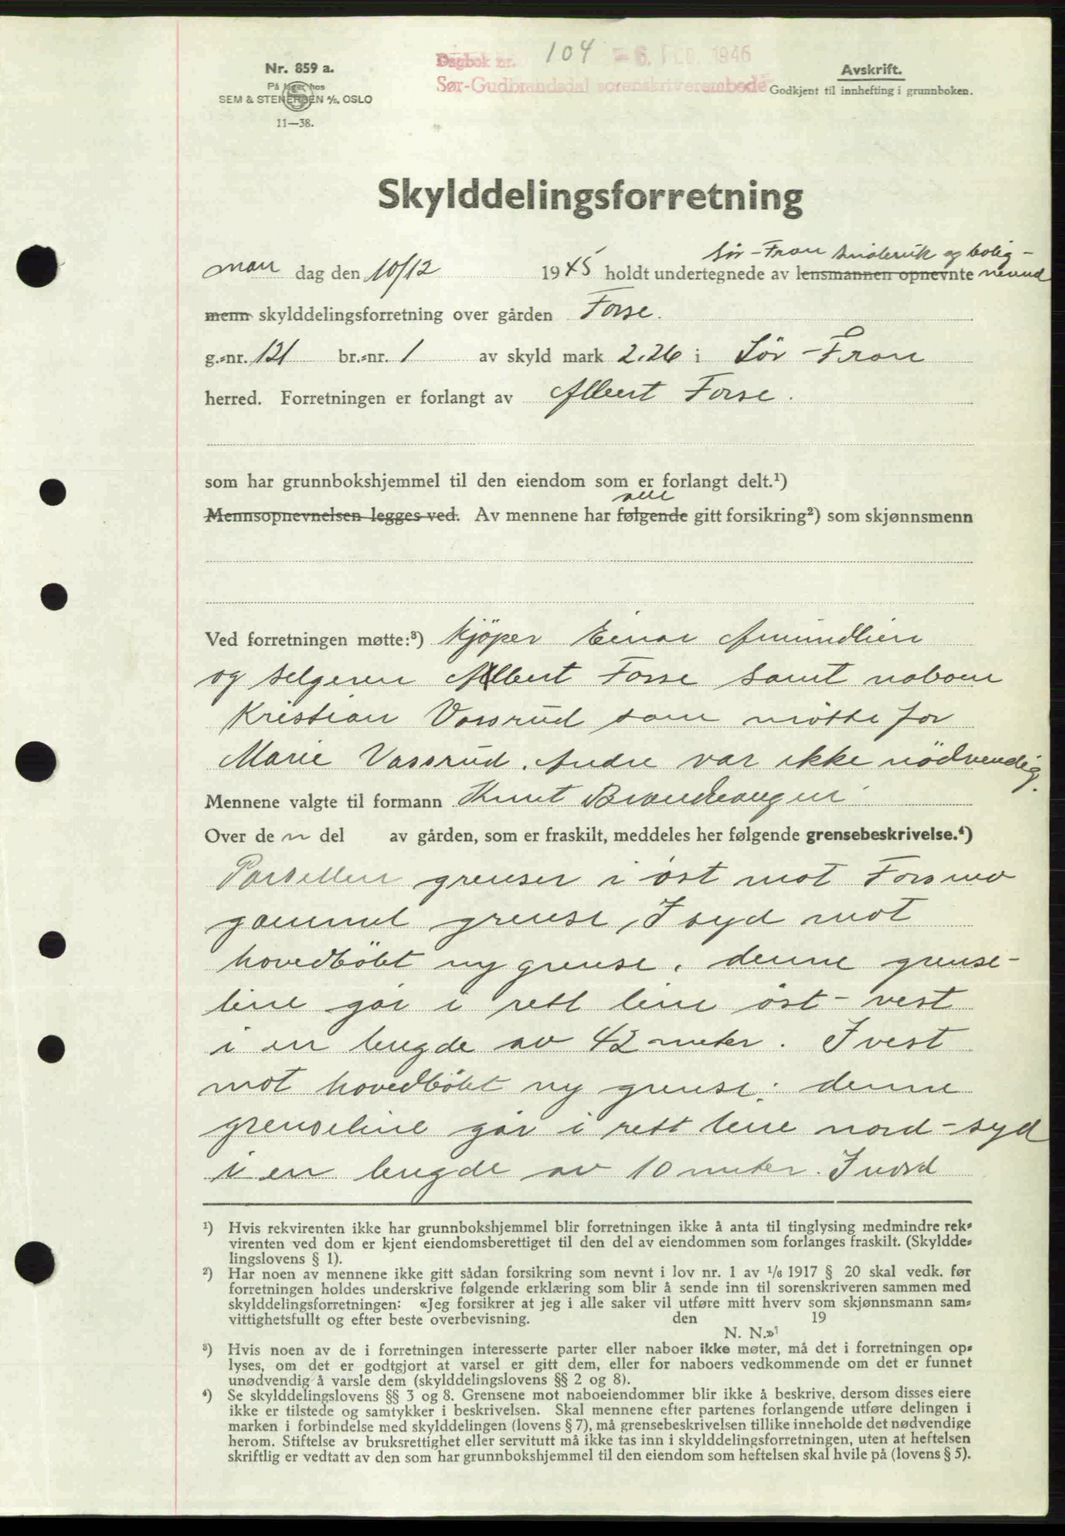 Nr. 859 a.
På lager hos
SEM & STENERSEN A/S, OSLO
11—38.
Dagbok nr. 104 - 6. FEB. 1946
Sør-Gudbrandsdal sorenskriverembede
Avskrift.
Godkjent til innhefting i grunnboken.
Skylddelingsforretning
Sør-Fron småbruk og bolig-
man dag den 10/12 1945 holdt undertegnede av lensmannen opnevnte nemnd
menn skylddelingsforretning over gården Forse.
g.-nr. 121 br.-nr. 1 av skyld mark 2.26 i Sør-Fron
herred. Forretningen er forlangt av Albert Forse.
som har grunnbokshjemmel til den eiendom som er forlangt delt.¹)
alle
Mennsopnevnelsen legges ved. Av mennene har følgende gitt forsikring²) som skjønnsmenn
Ved forretningen møtte:³) Kjøper Einar Amundlien
og selgeren Albert Forse samt naboen
Kristian Vassrud som møtte for
Marie Vassrud. Andre var ikke nödvendig.
Mennene valgte til formann Knut Brandvangen
Over de n del av gården, som er fraskilt, meddeles her følgende grensebeskrivelse.⁴)
Parsellen grenser i öst mot Forsmo
gammel grense, I syd mot
hovedbölet ny grense, denne grense-
line går i rett line öst-vest
i en lengde av 42 meter. I vest
mot hovedbölet ny grense; denne
grenseline går i rett line nord-syd
i en lengde av 10 meter. I nord
¹) Hvis rekvirenten ikke har grunnbokshjemmel blir forretningen ikke å anta til tinglysing medmindre rek-
virenten ved dom er kjent eiendomsberettiget til den del av eiendommen som forlanges fraskilt. (Skyldde-
lingslovens § 1).
²) Har noen av mennene ikke gitt sådan forsikring som nevnt i lov nr. 1 av 1/6 1917 § 20 skal vedk. før
forretningen holdes underskrive følgende erklæring som blir å sende inn til sorenskriveren sammen med
skylddelingsforretningen: «Jeg forsikrer at jeg i alle saker vil utføre mitt hverv som skjønnsmann sam-
vittighetsfullt og efter beste overbevisning. den 19
N. N.»
³) Hvis noen av de i forretningen interesserte parter eller naboer ikke møter, må det i forretningen op-
lyses, om det er godtgjort at varsel er gitt dem, eller for naboers vedkommende om det er funnet
unødvendig å varsle dem (skylddelingslovens §§ 2 og 8).
⁴) Se skylddelingslovens §§ 3 og 8. Grensene mot naboeiendommer blir ikke å beskrive, dersom disses eiere
ikke er tilstede og samtykker i beskrivelsen. Skal mennene efter partenes forlangende utføre delingen i
marken i forbindelse med skylddelingen (lovens § 7), må grensebeskrivelsen tillike inneholde det nødvendige
herom. Stiftelse av bruksrettighet eller servitutt må ikke tas inn i skylddelingsforretningen, uten at heftelsen
skriftlig er vedtatt av den som har grunnbokshjemmel til den eiendom som heftelsen skal hvile på (lovens § 5).